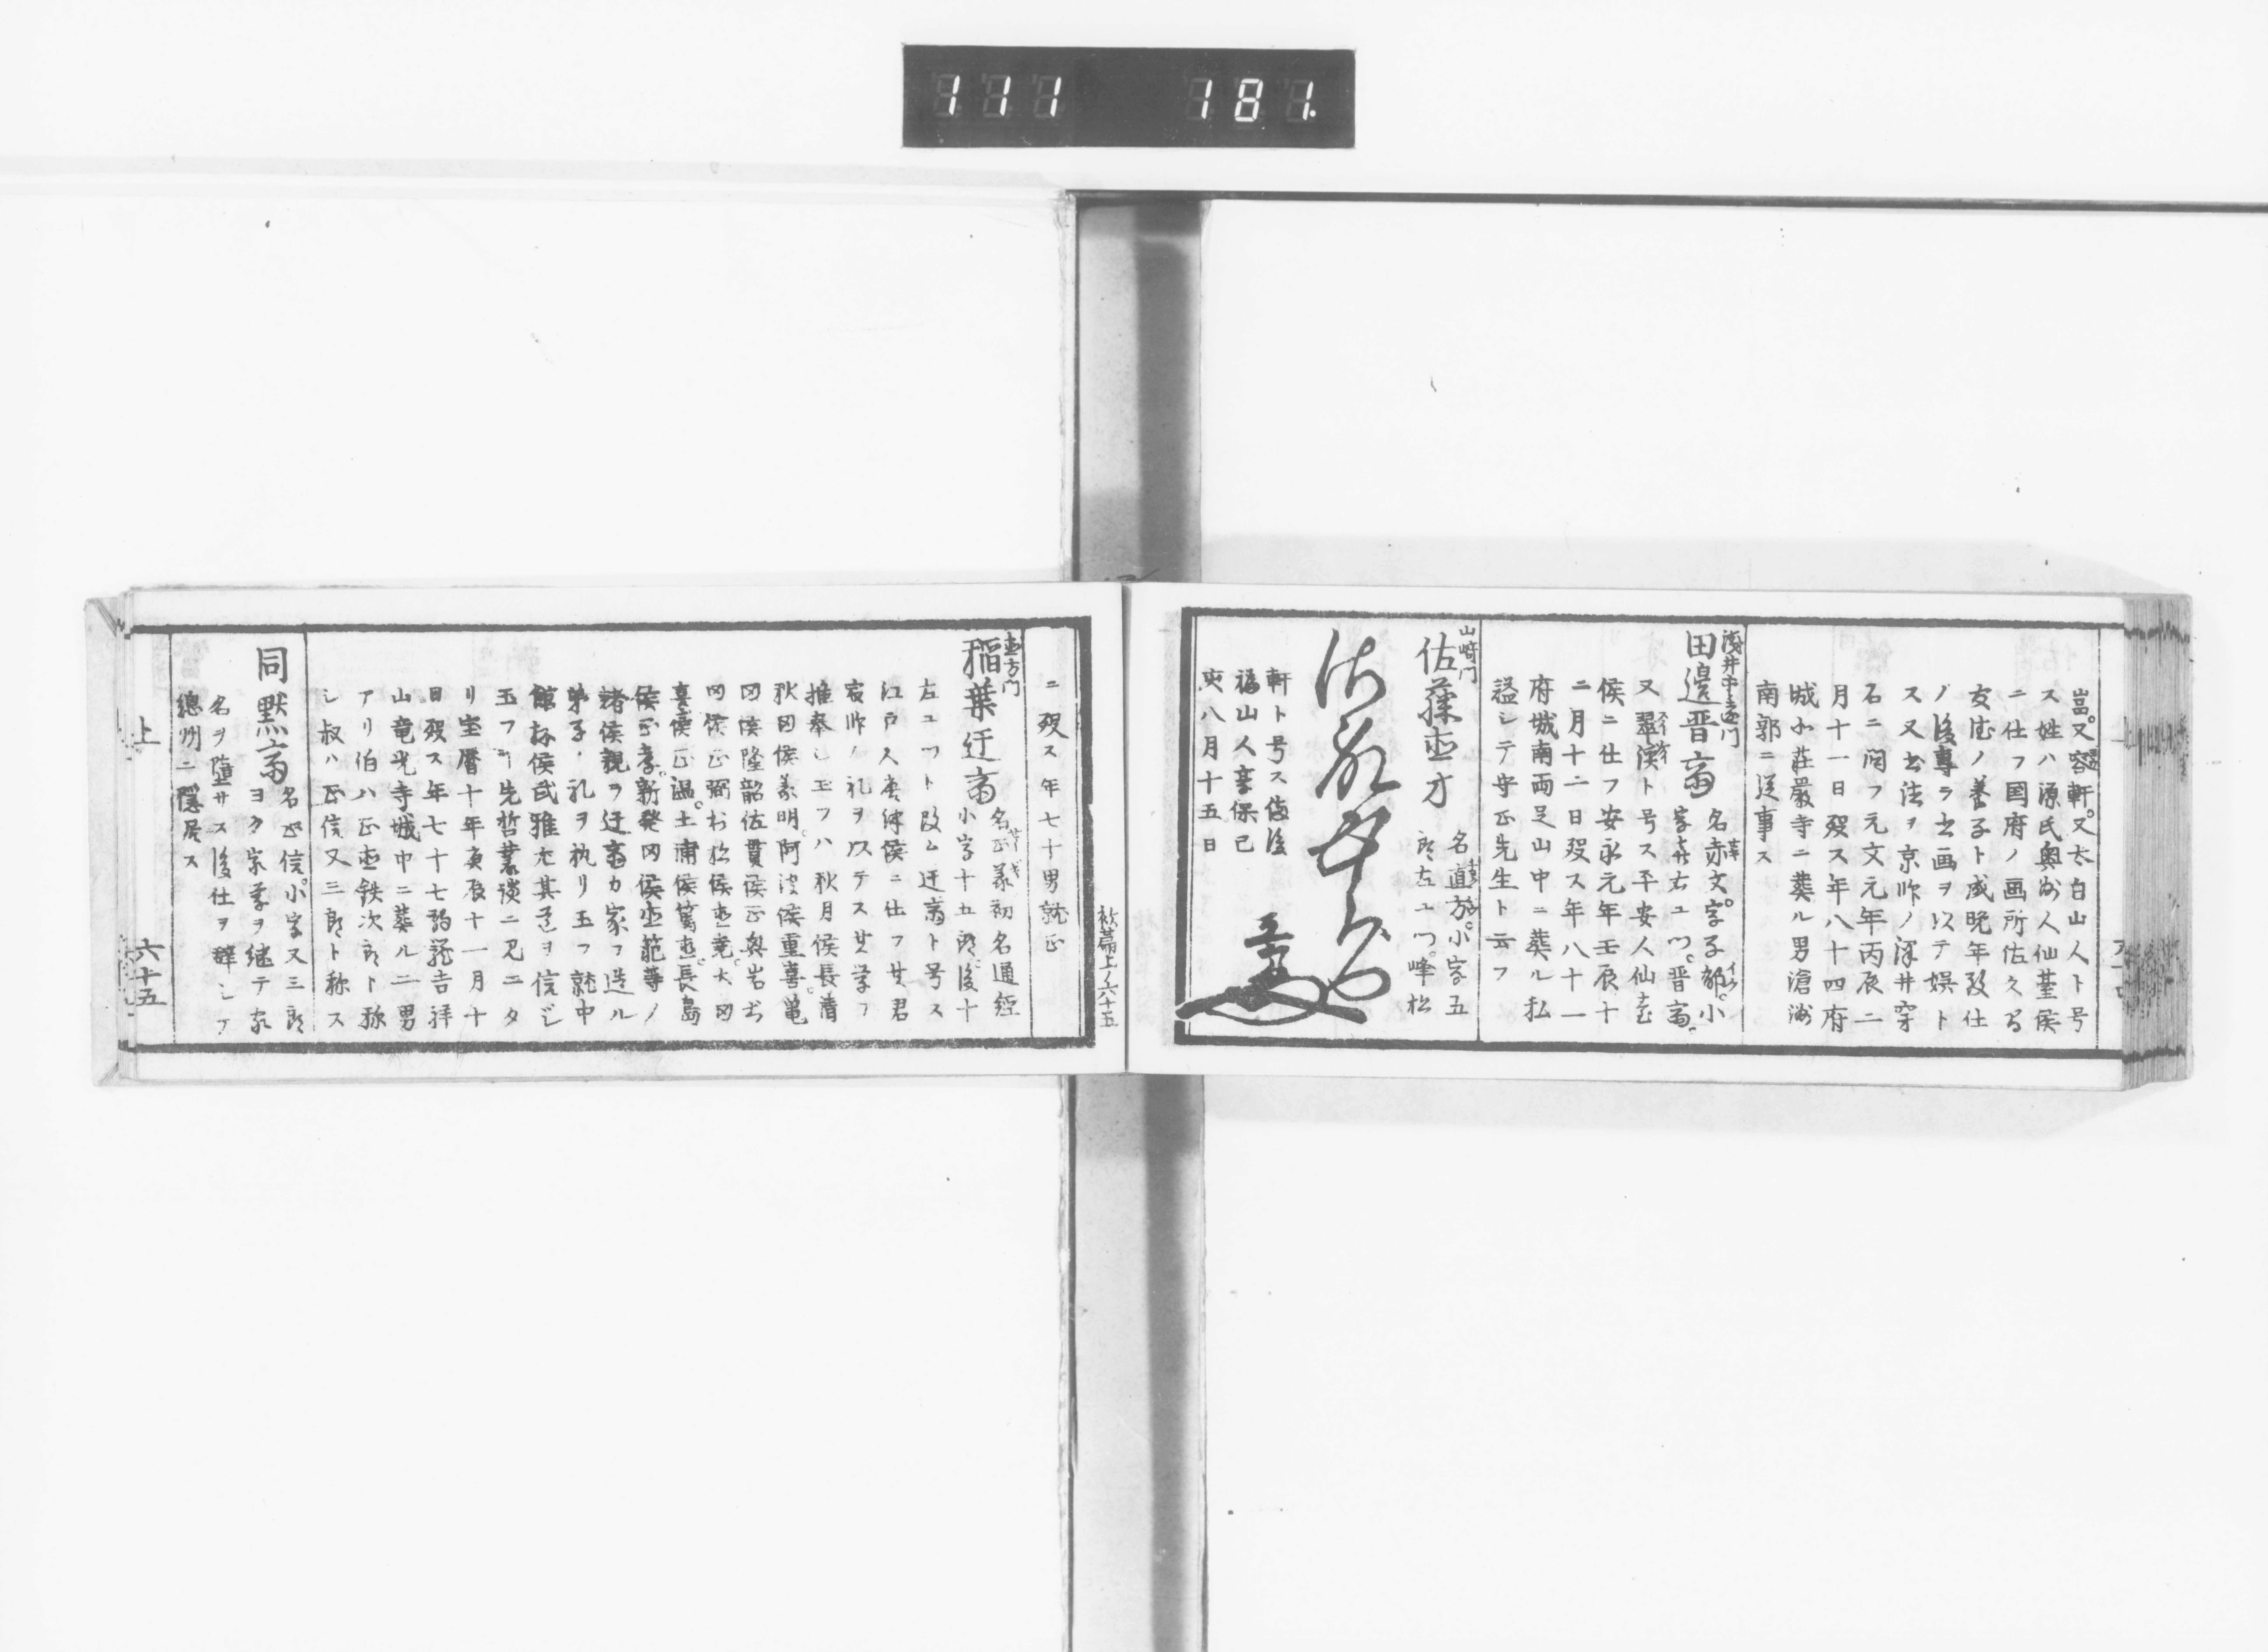 111 181.
嵓。又容軒。又太白山人ト号
ス姓ハ源氏奥州人仙䑓侯
ニ仕フ国府ノ画所佐久間
友徳ノ養子ト成晩年致仕
ノ後専ラ書画ヲ以テ娯ト
ス又書法ヲ京師ノ深井穿
石ニ問フ元文元年丙辰二
月十一日歿ス年八十四府
城北荘嚴寺ニ葬ル男滄洲
南郭ニ従事ス
田邊晋斎
名赤文。字子郁。小
字喜右ヱ門。晋斎。
又翠渓ト号ス平安人仙䑓
侯ニ仕フ安永元年壬辰十
二月十二日歿ス年八十一
府城南両足山中ニ葬ル私
謚シテ守正先生ト云フ
山﨑門
佐藤直方
名直方。小字五
郎左ヱ門。峰松
軒ト号ス備後
福山人享保己
亥八月十五日
ニ歿ス年七十男就正
直方門
稲葉迂斎
名正義初名通經
小字十五郎。後十
左ヱ門ト改ム迂斎ト号ス
江戸人唐津侯ニ仕フ其君
賓師ノ礼ヲ以テス其学ヲ
推奉シ玉フハ秋月侯長清
秋田侯義明。阿波侯重喜。亀
田侯隆韶佐貫侯正興岩城
田侯正弼村松侯直堯。大田
喜侯正温。土浦侯篤直。長島
侯正孝。新発田侯直範等ノ
諸侯親ヲ迂斎カ家ヲ造ル
弟子ノ礼ヲ執リ玉フ就中
舘林侯武雅尤其道ヲ信ジ
玉フヿ先哲叢談ニ見ニタ
リ宝暦十年庚辰十一月十
日歿ス年七十七駒篭吉祥
山竜光寺城中ニ葬ル二男
アリ伯ハ正直鉄次郎ト称
シ叔ハ正信又三郎ト称ス
同黙斎
名正信。小字又三郎
ヨク家学ヲ継テ家
名ヲ墮サス後仕ヲ辞シテ
總州ニ隠居ス
上
六十五